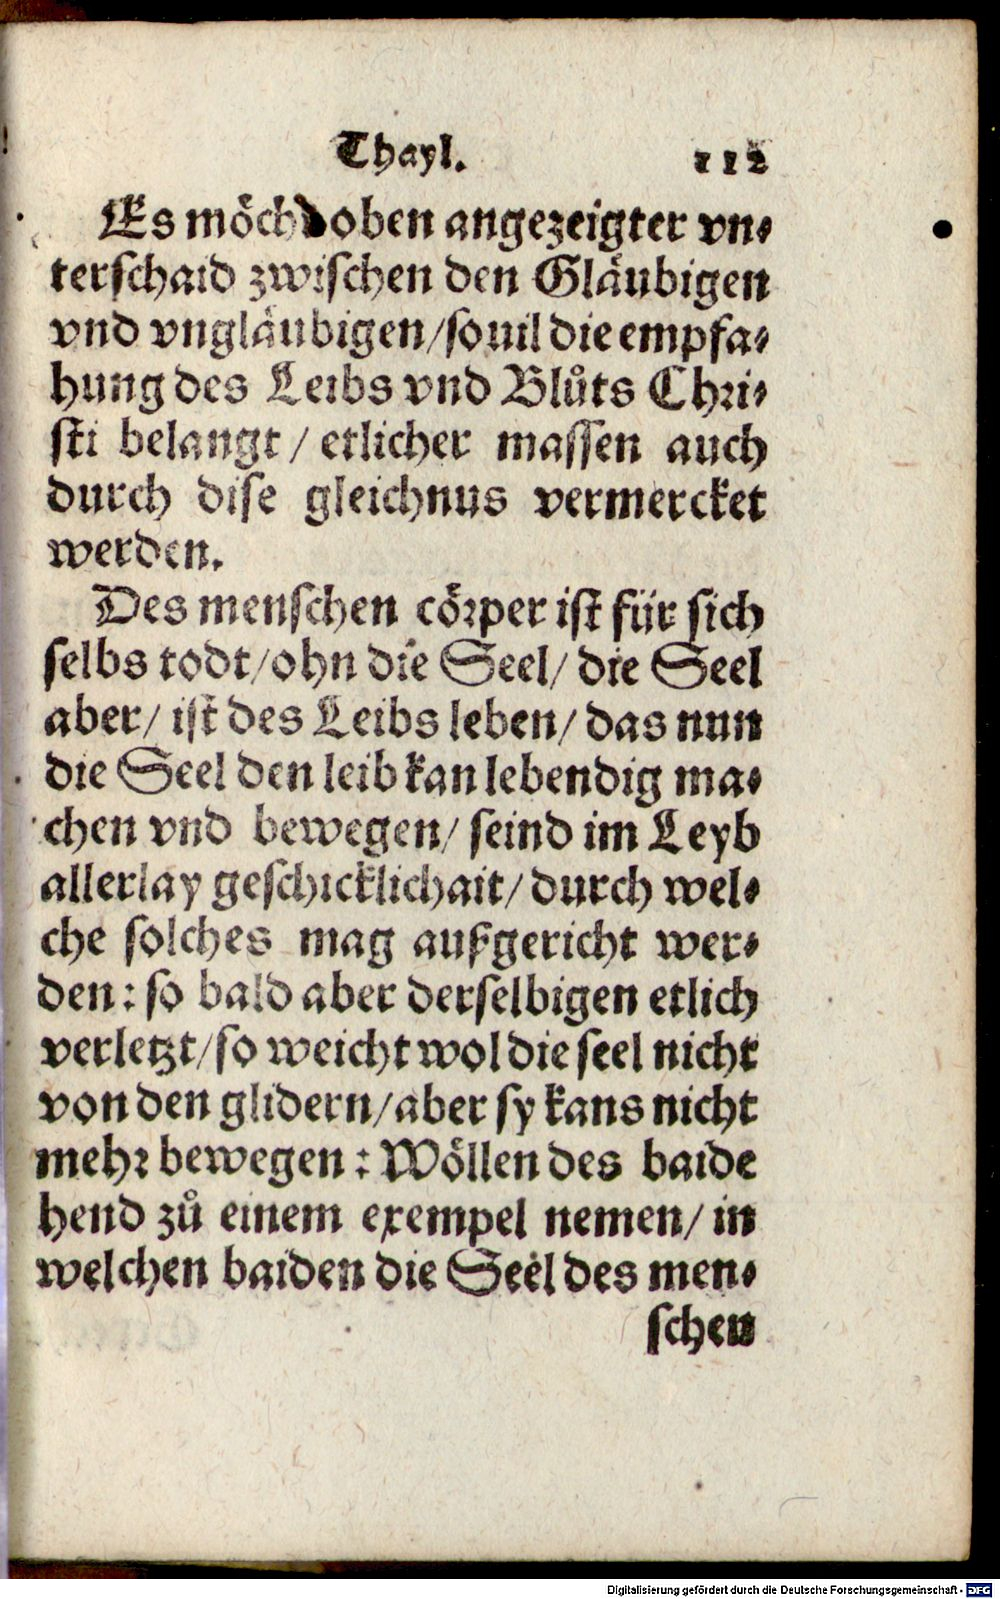 Thayl. 112
Es möcht oben angezeigter vn⸗
terschaid zwischen den Gläubigen
vnd vngläubigen/souil die empfa⸗
hung des Leibs vnd Blůts Chri⸗
sti belangt / etlicher massen auch
durch dise gleichnus vermercket
werden.
Des menschen cörper ist für sich
selbs todt/ohn die Seel/ die Seel
aber/ ist des Leibs leben/ das nun
die Seel den leib kan lebendig ma⸗
chen vnd bewegen/ seind im Leyb
allerlay geschicklichait/ durch wel⸗
che solches mag außgericht wer⸗
den: so bald aber derselbigen etlich
verletzt/so weicht wol die seel nicht
von den glidern/aber sy kans nicht
mehr bewegen: Wöllen des baide
hend zů einem exempel nemen/ in
welchen baiden die Seel des men⸗
schen
Digitalisierung gefördert durch die Deutsche Forschungsgemeinschaft - DFG